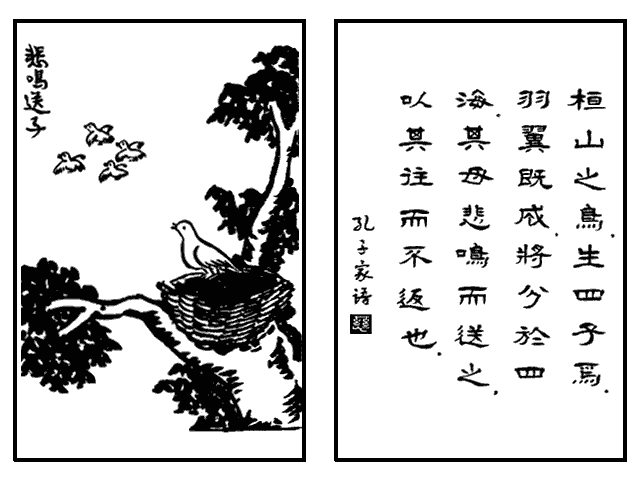 悲鳴送子
桓山之鳥.生四子焉.
羽翼既成.將分於四
海.其母悲鳴而送之.
以其往而不返也.
孔子家語